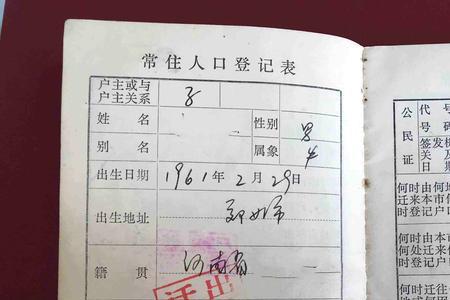 常住人口登记表
户主或与户主关系 子
姓名 性别 男
别名 属象 牛
出生日期 1961年2月29日
出生地址 郑州市
籍贯 河南省
迁出
公民证
代号
号码
签发机
关及
日期
何时由何地
迁来本市何
时登记户口
何时由何
何处迁来
时登记户
何时迁往